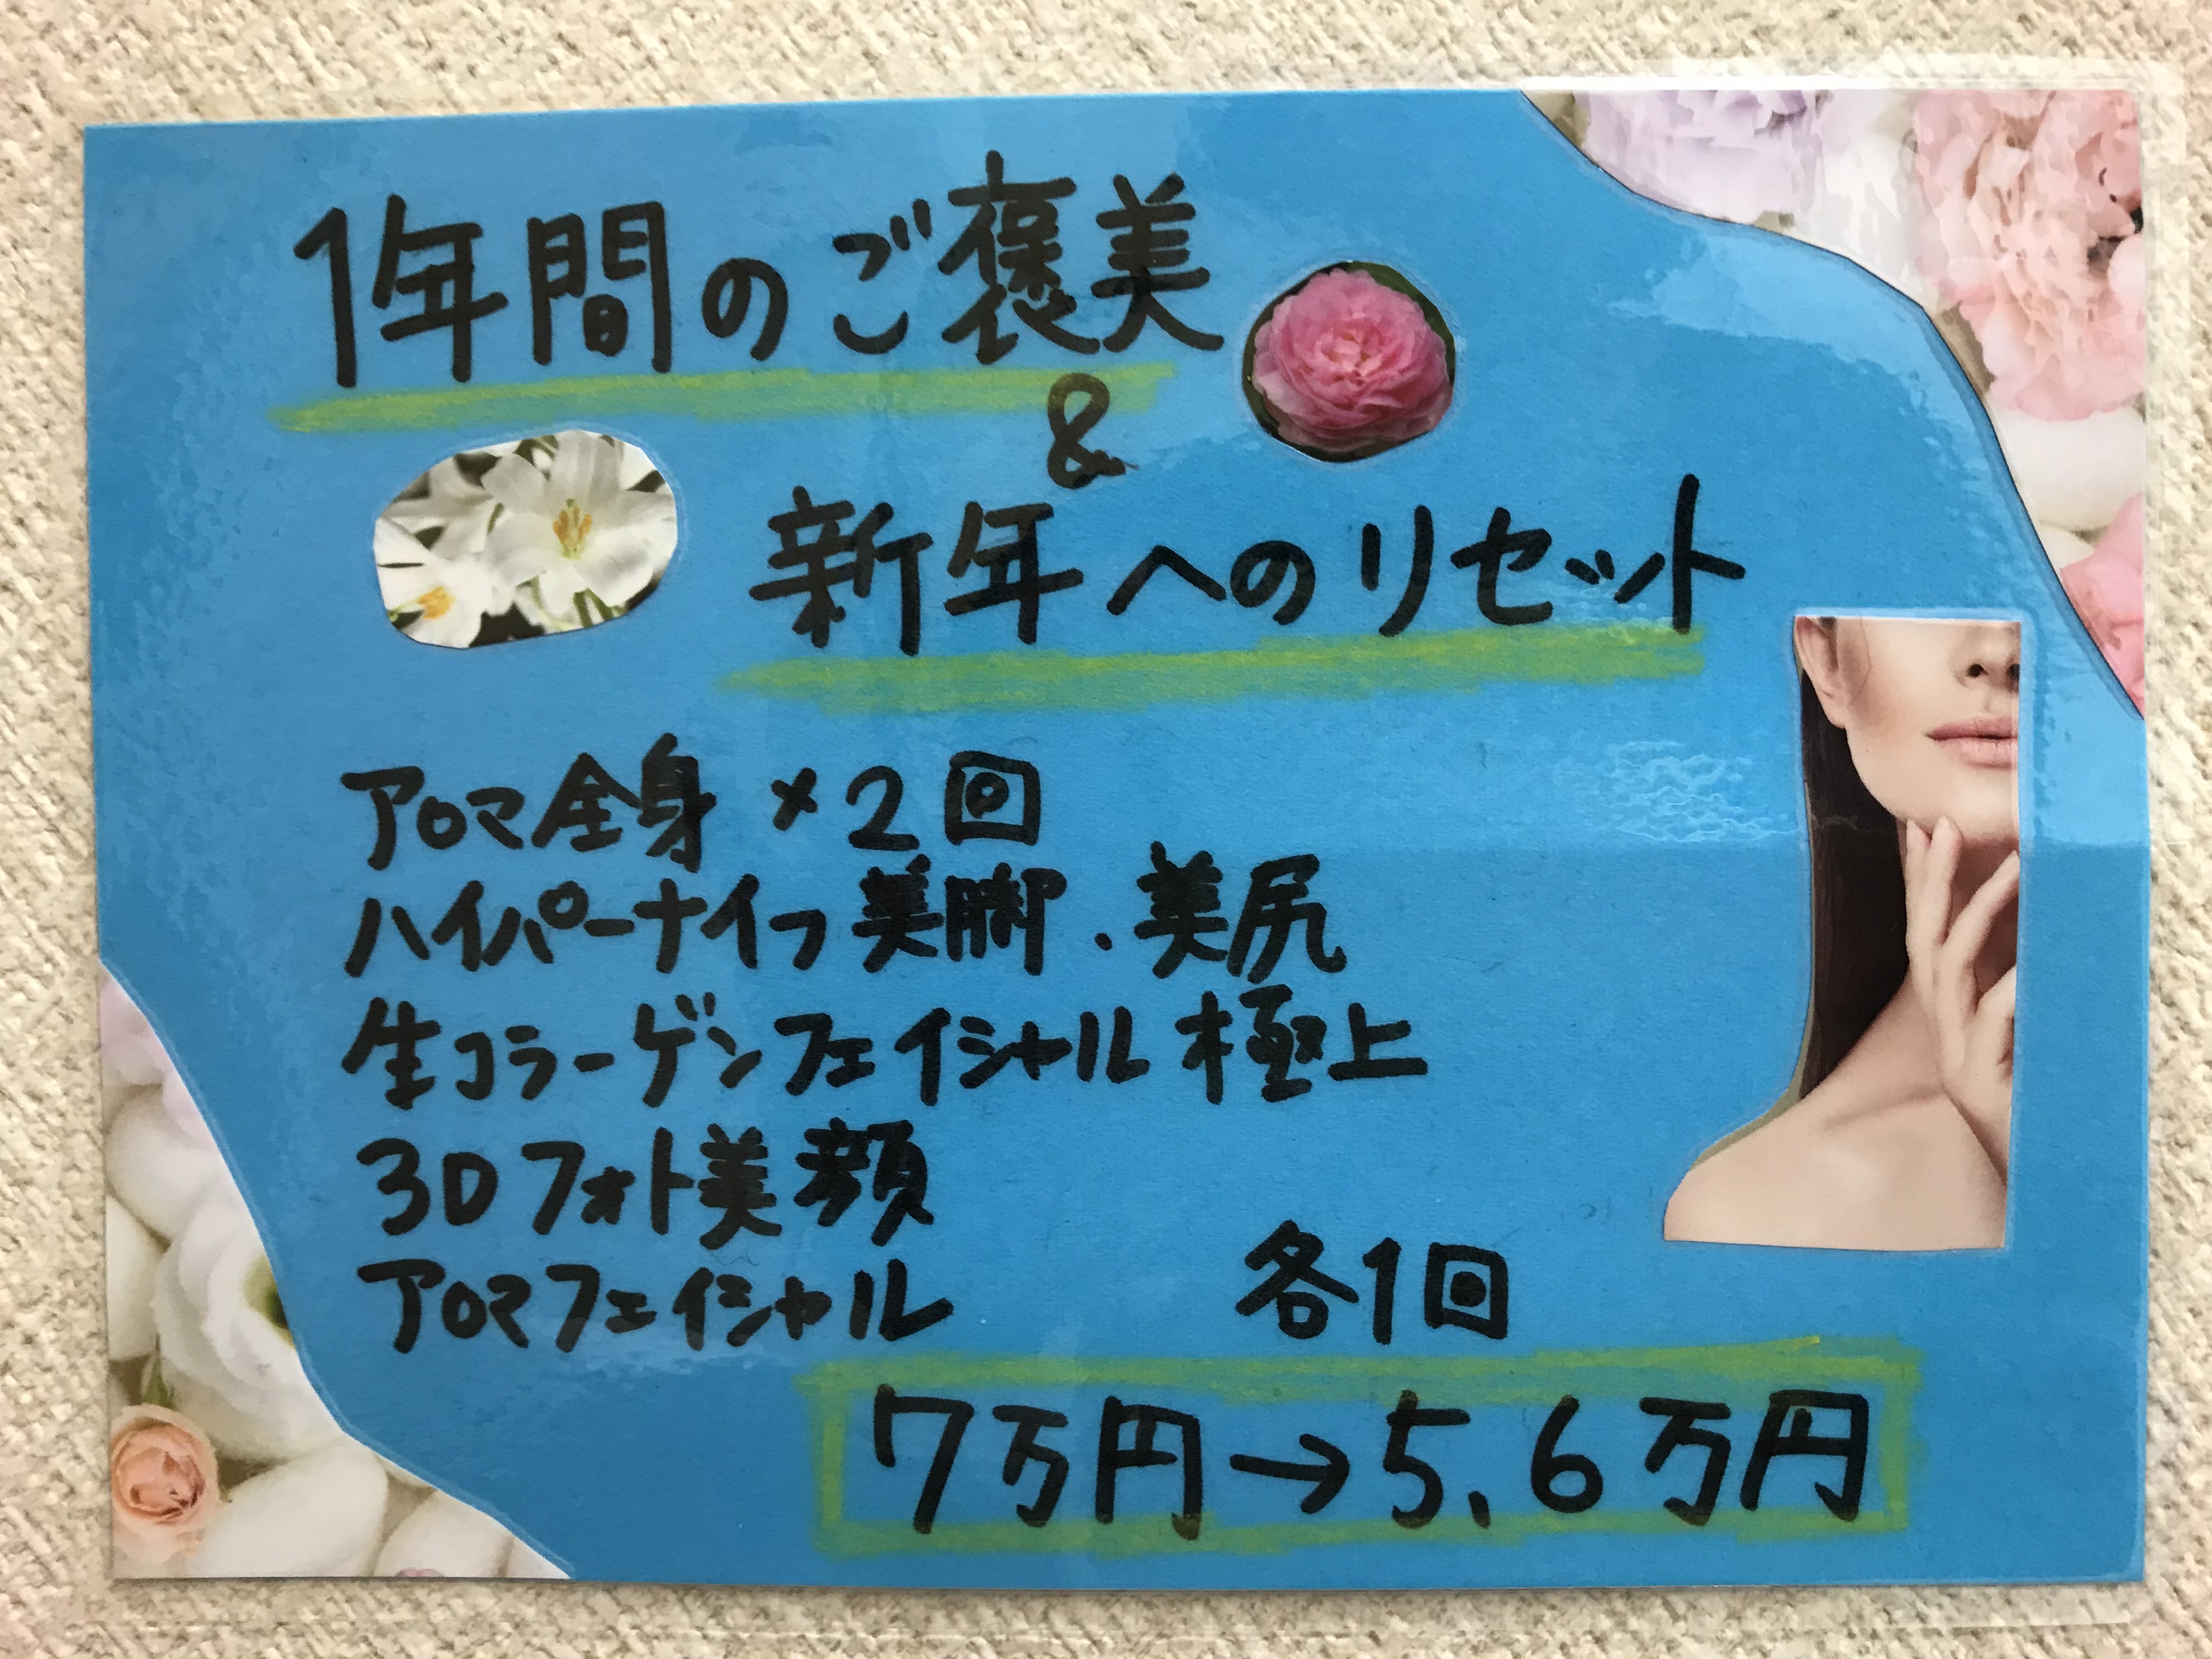 1年間のご褒美
&
新年へのリセット
アロマ全身 ×2回
ハイパーナイフ美脚.美尻
生コラーゲンフェイシャル極上
3Dフォト美顔
アロマフェイシャル 各1回
7万円→5.6万円